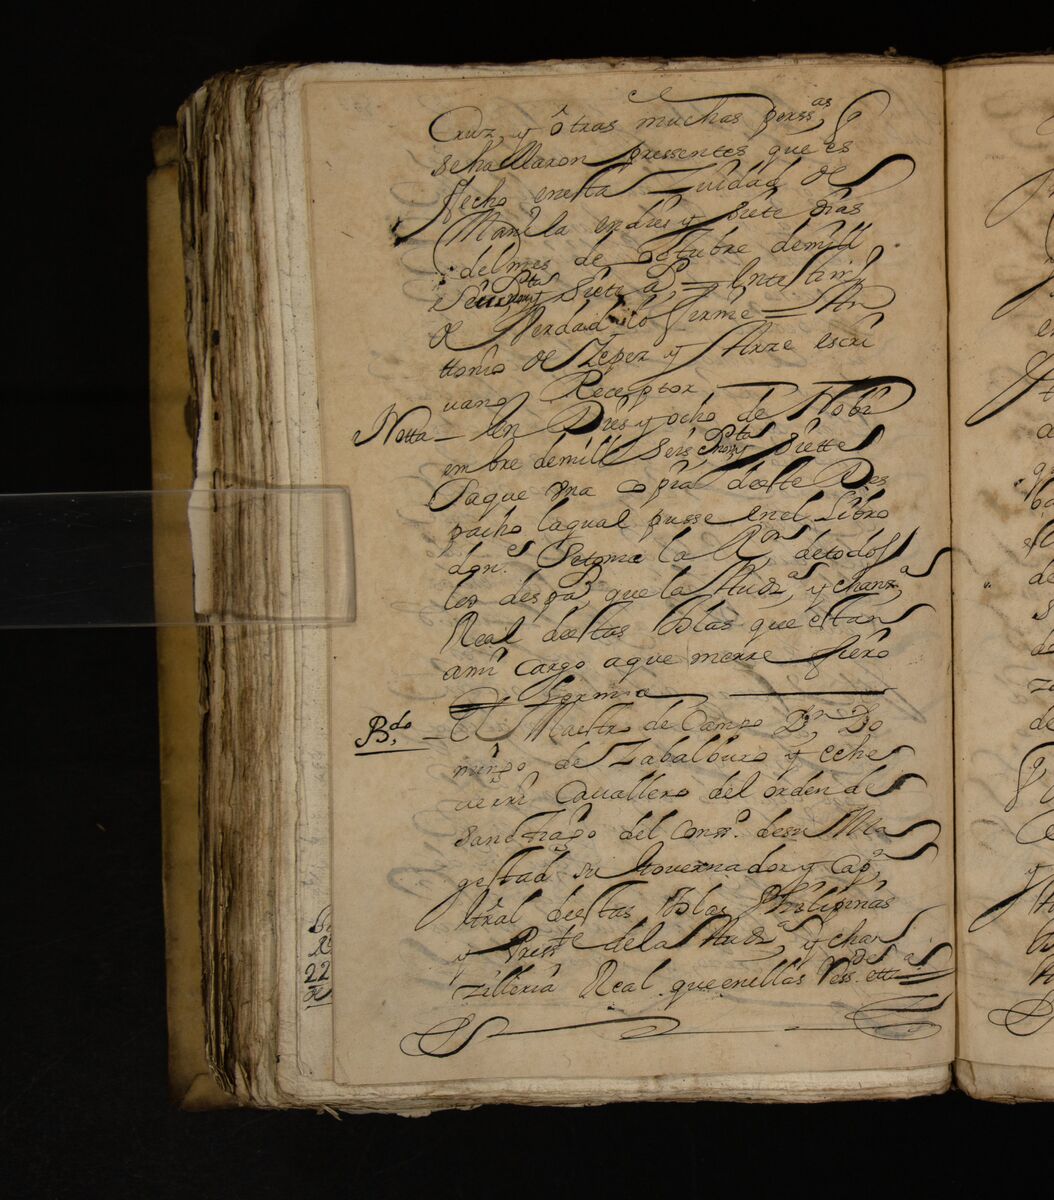 Cruz, y ôtras muchas perss.as q
se hallaron pressentes que es
ffecho en esta Zuidad de
Manila en dies y siete dias
del mes de octubre de mill
seis y siete a.s = en testimo
de Verdad lo firmè = An
ttonio de Zepez y Arze escri
uano Receptor
Notta — En Dies y ocho de Nobi
embre de mill seis y siette
Saque vna copia de este Des
pacho la qual pusse en el Libro
don.e se toma la R.on de todos
los desp.s que la Aud.a y chanz.a
Real de estas Yslas que estan
a mi cargo a que me rre fiero
firma
B.do — El Maestro de Campo D.n Do
mingo de Zabalburo y eche
uerri Cauallero del órden de
Sanctiago del Cons.o de su Ma
gestad su Gouernador y Cap.n
Gral de estas Yslas Philipinas
y Press.te de la Aud.a y chan
zilleria Real que en ellas Ress.de etta
22